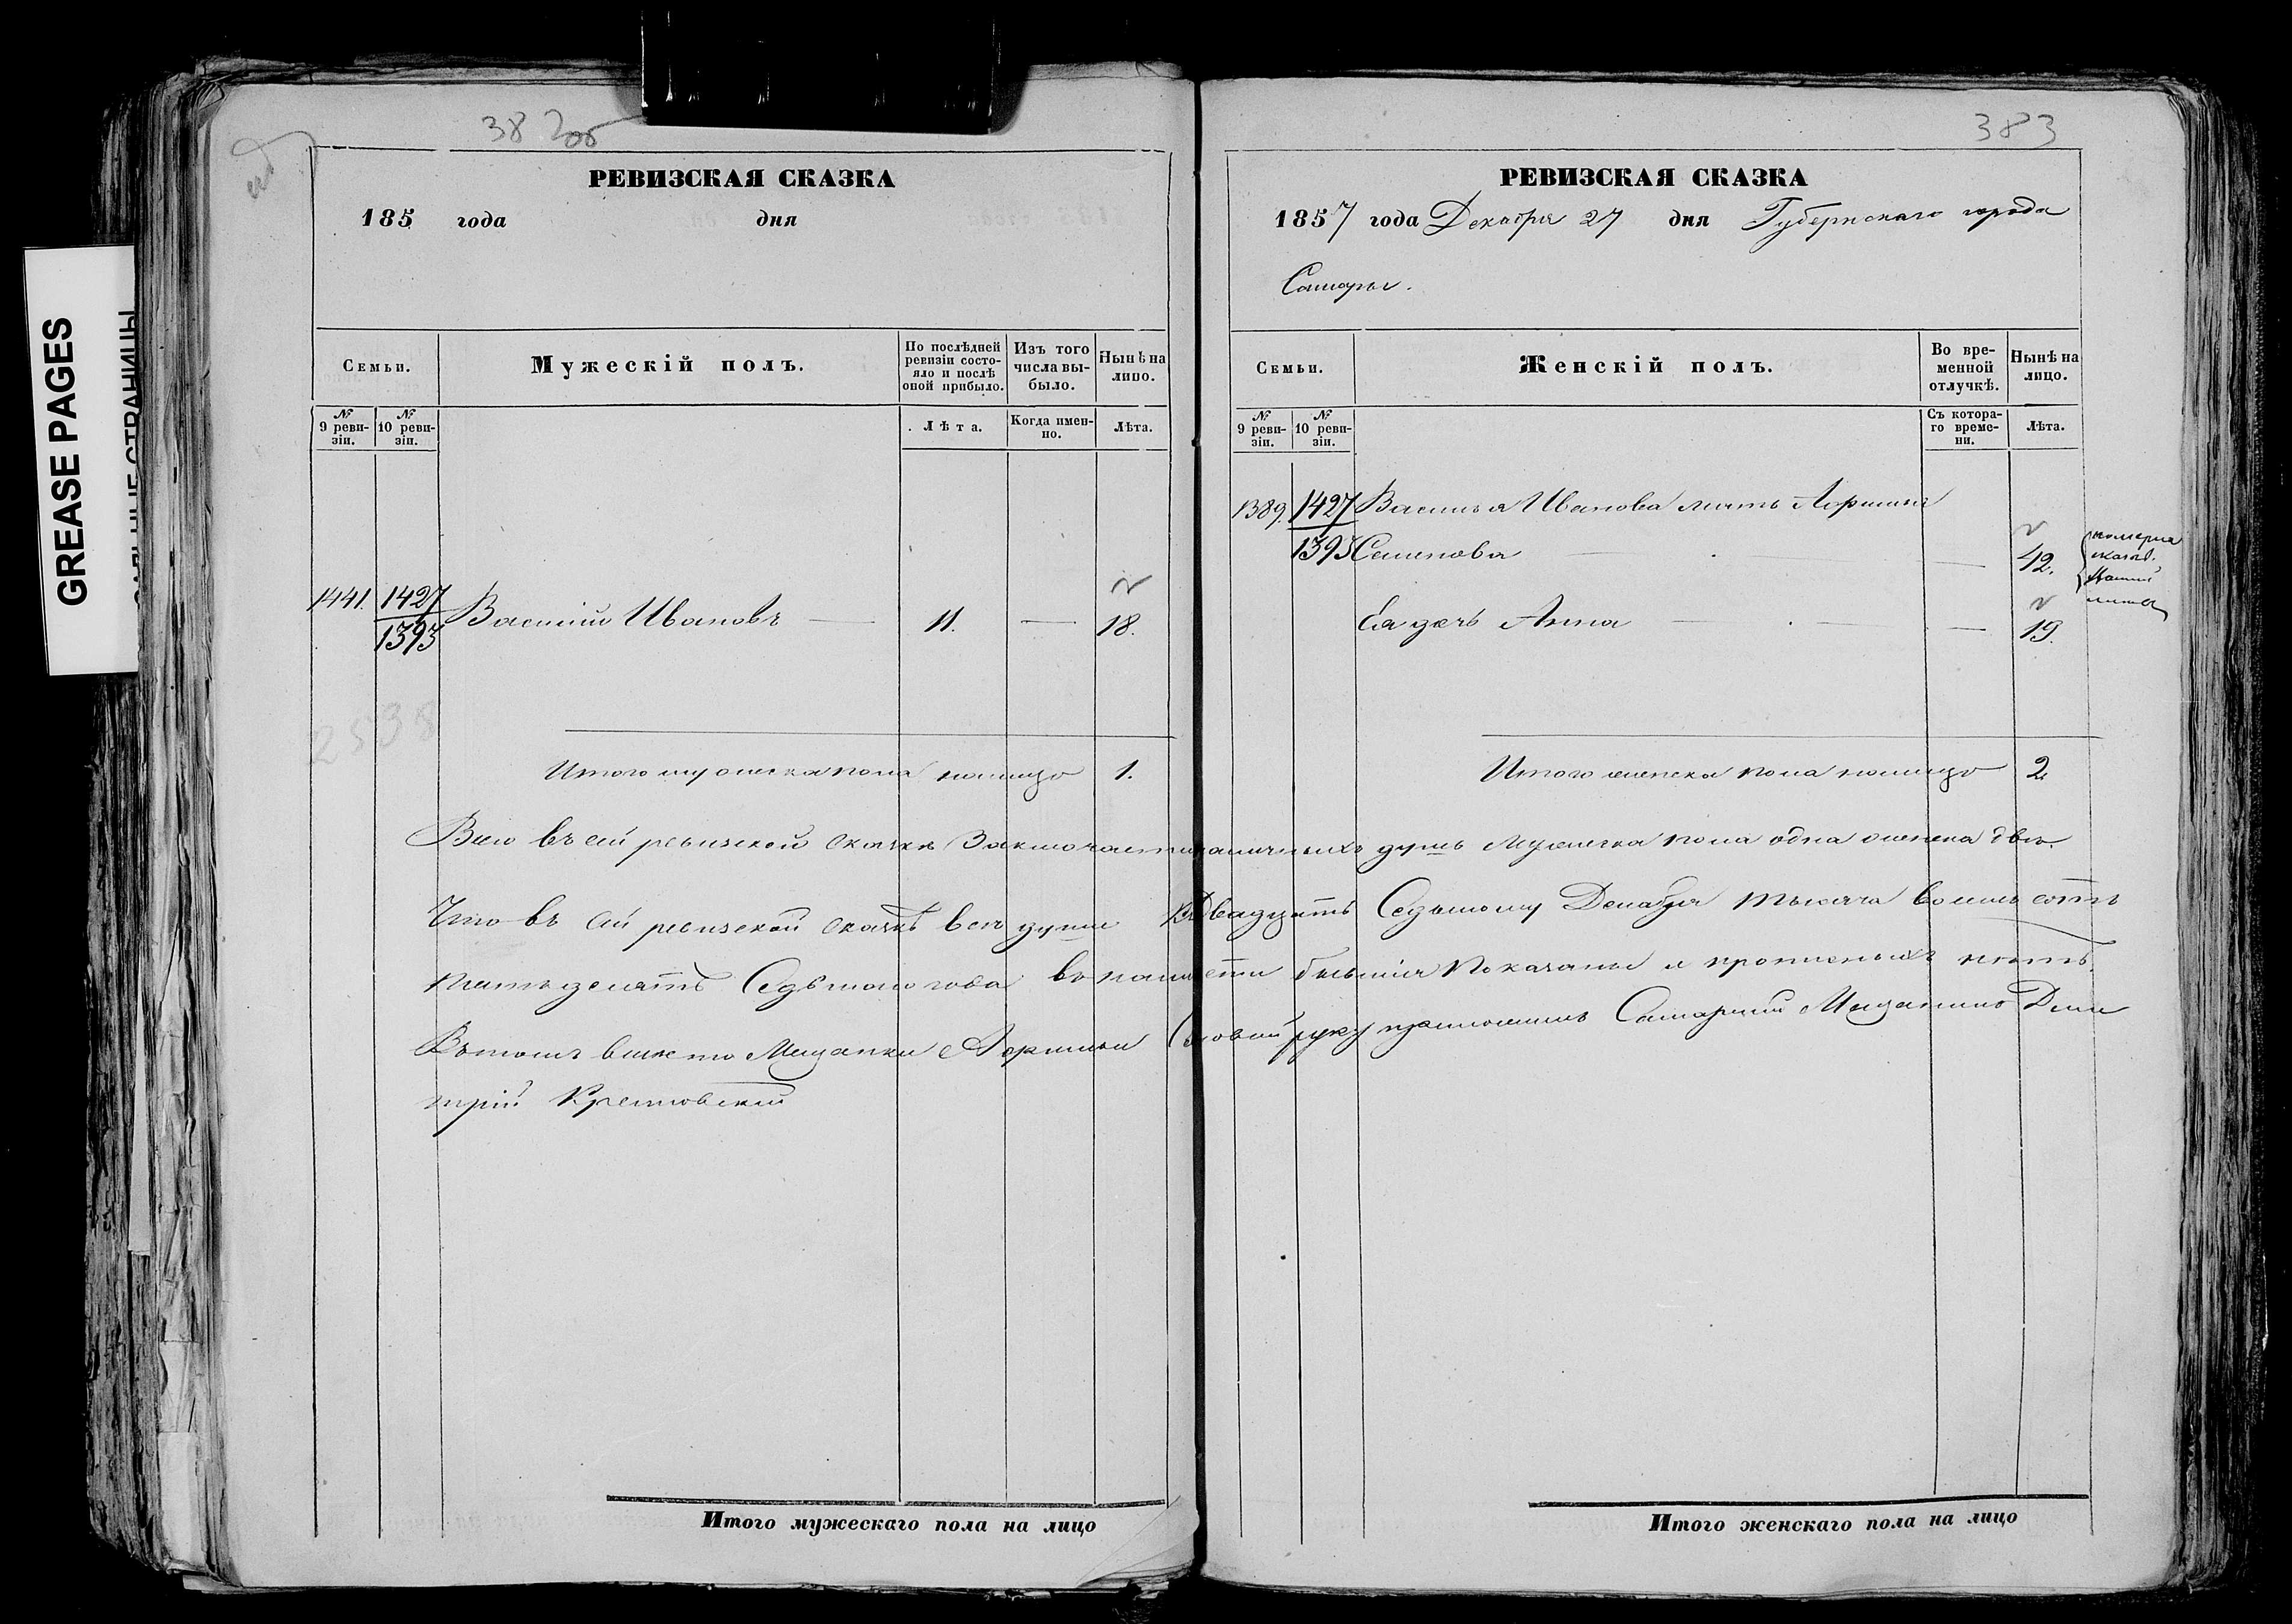 GREASE PAGES
38 2об
РЕВИЗСКАЯ СКАЗКА
185 года дня
Семьи.
Мужескій полъ.
По послѣдней ревизіи состояло и послѣ оной прибыло.
Изъ того числа выбыло.
Нынѣ на лицо.
№ 9 ревизіи.
№ 10 ревизіи.
Лѣта.
Когда именно.
Лѣта.
1441. 1427 Василій Ивановъ — 11. — 18.
1393
2538
Итого мужеска пола налицо 1.
383
РЕВИЗСКАЯ СКАЗКА
1857 года Декабря 27 дня Губернскаго города
Самары.
Семьи.
Женскій полъ.
Во временной отлучкѣ.
Нынѣ на лицо.
№ 9 ревизіи.
№ 10 ревизіи.
Съ котораго времени.
Лѣта.
1389. 1427 Василья Иванова мать
1393 Семенова — 42.
Ея дочь Анна — 19.
Итого женска пола налицо 2
Всего въ сей ревизской сказкѣ заключается наличныхъ душъ мужеска пола одна женска двѣ.
Что въ сей ревизской сказкѣ всѣ души къ Двадцать Седьмому Декабря тысяча восемь сотъ
пятьдесятъ Седьмого года въ налич бывшія показаны и прописныхъ нѣтъ.
Въ томъ вмѣсто Мещанки руку приложилъ Самарскій Мещанинъ Дми
трій
Итого мужескаго пола на лицо
Итого женскаго пола на лицо